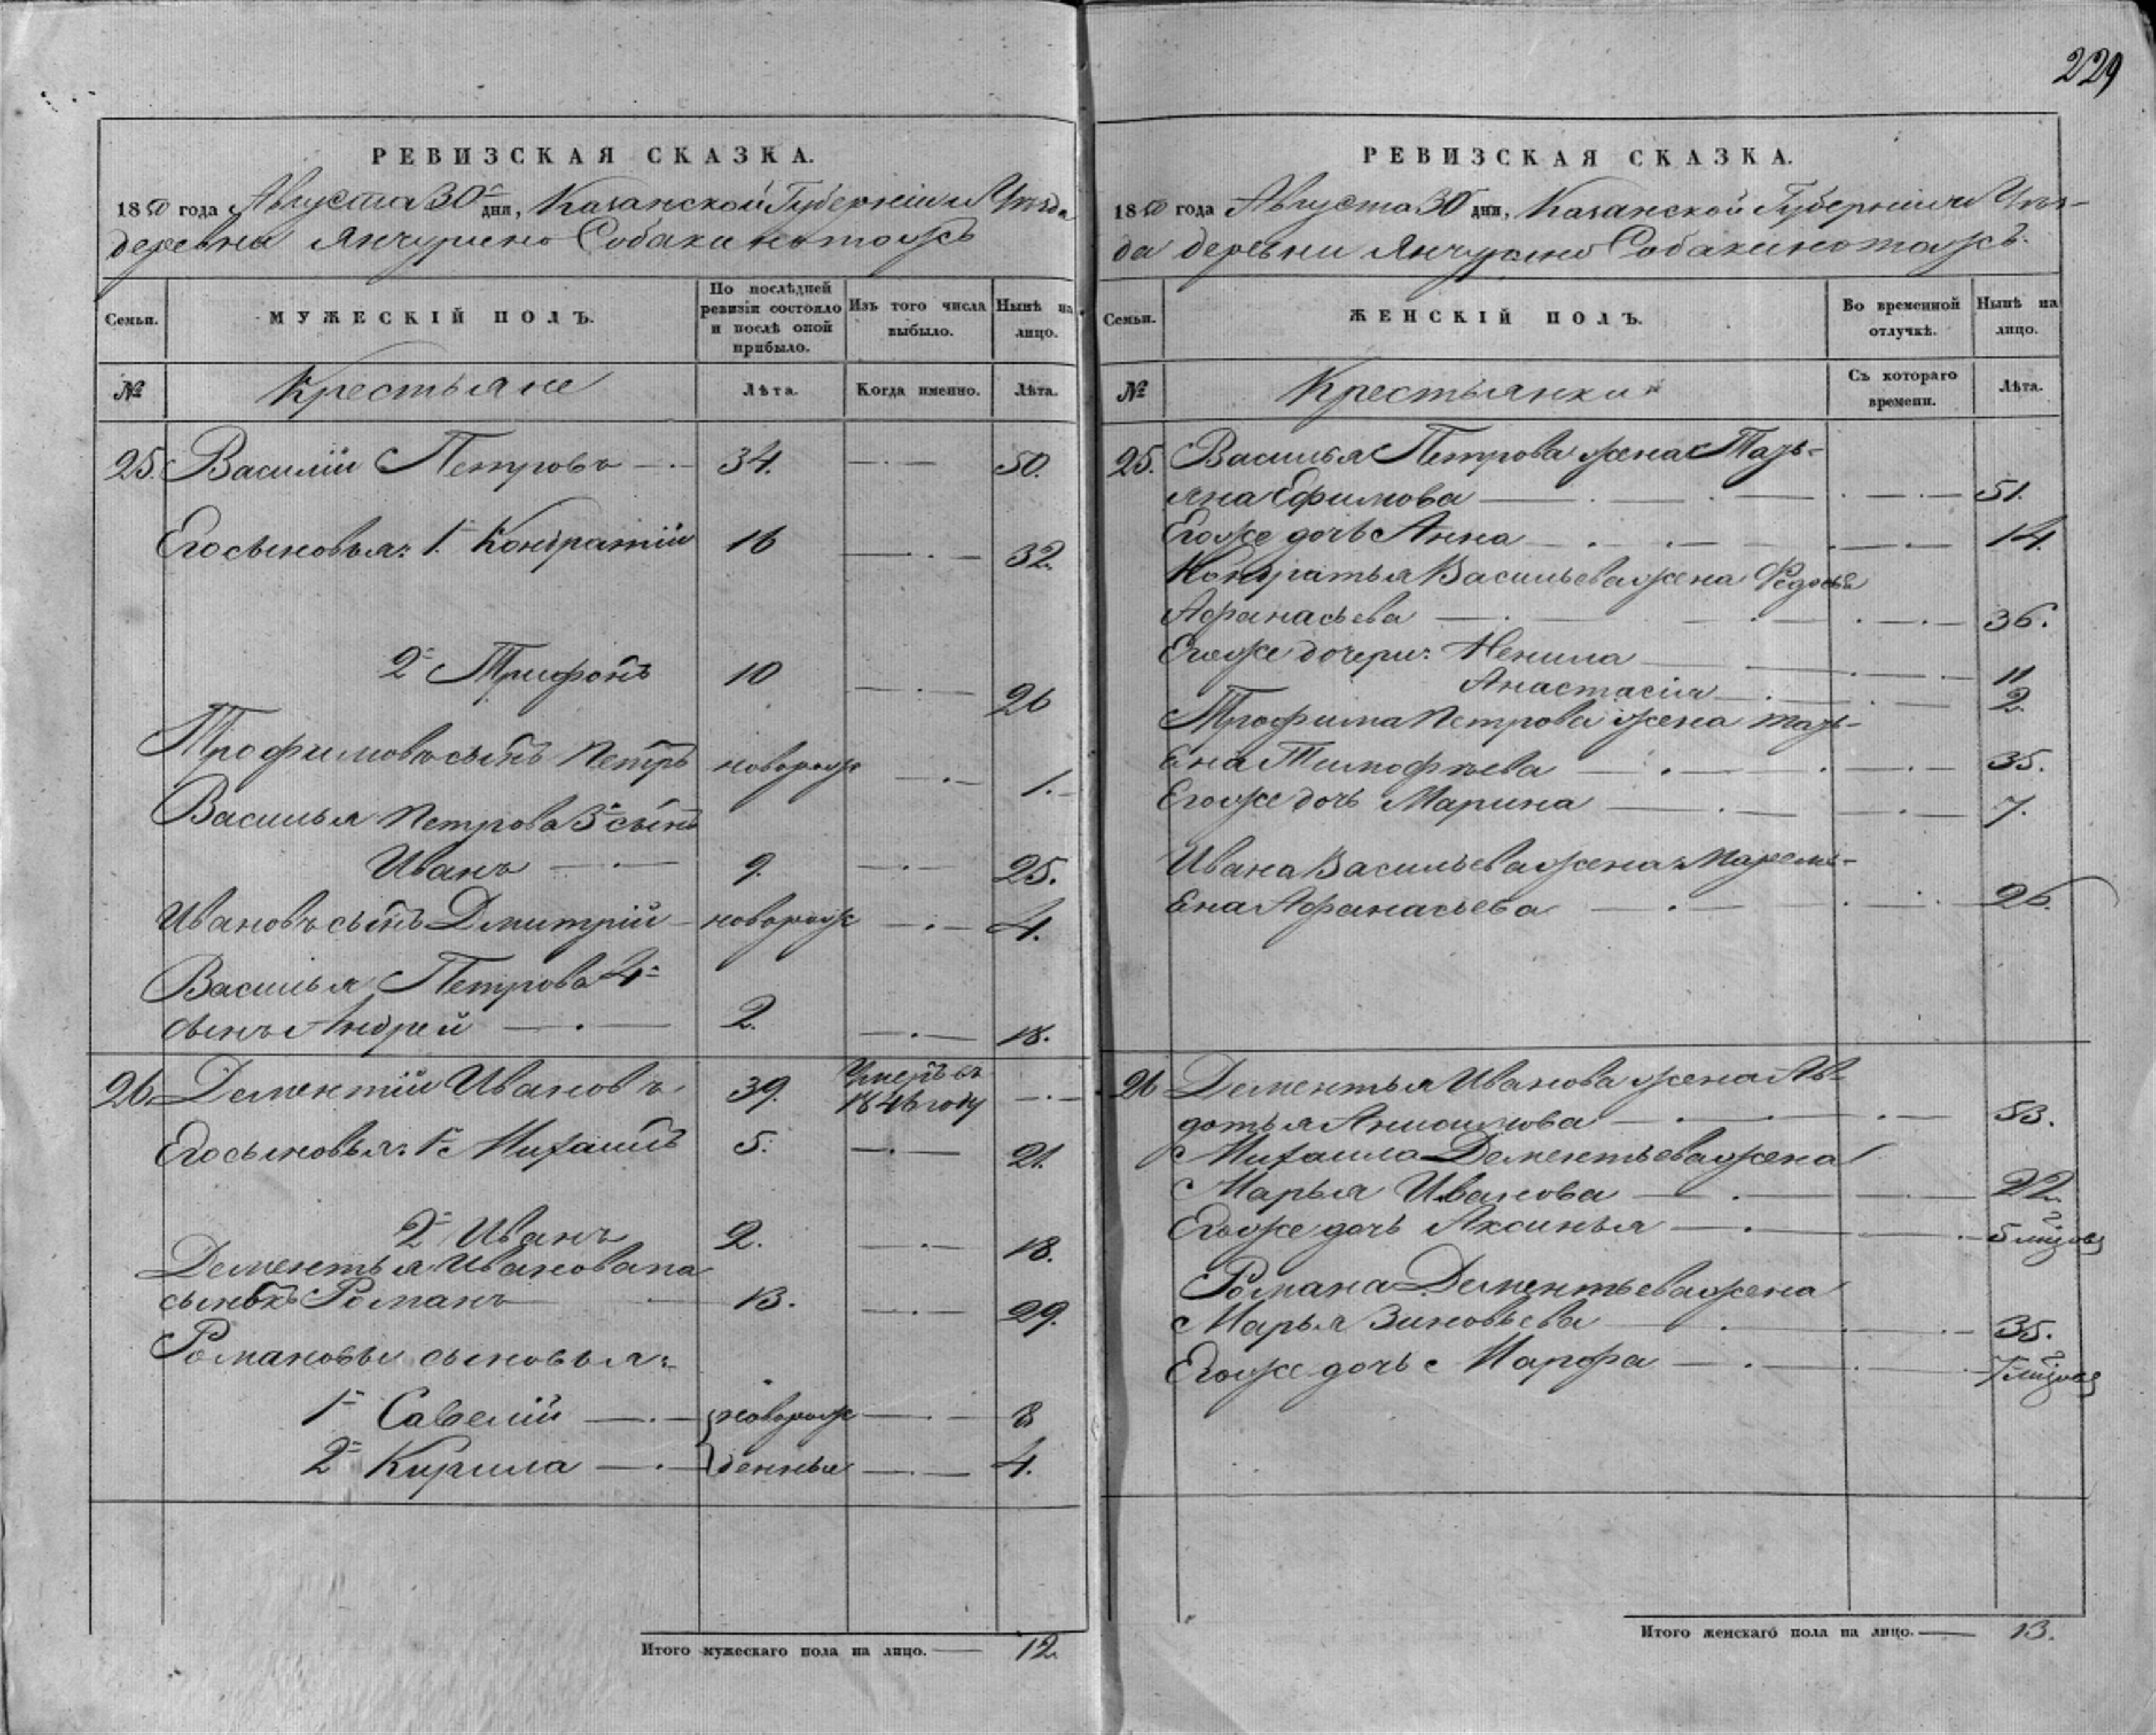 229
РЕВИЗСКАЯ СКАЗКА.
1850 года Августа 30 дня, Казанской Губерніи и Уѣзда
деревни Янчурино Собакино тожъ
Семьи. МУЖЕСКІЙ ПОЛЪ. По послѣдней ревизіи состояло и послѣ оной прибыло. Изъ того числа выбыло. Нынѣ на лицо.
№ Крестьяне Лѣта. Когда именно. Лѣта.
25. Василій Петровъ 34. 50.
Его сыновья: 1. Кондратій 16 32.
2 Трифонъ 10 26
Трофимовъ сынъ Петръ новорож 1.
Василья Петрова 3 сынъ
Иванъ 9. 25.
Ивановъ сынъ Дмитрій новорож 4.
Василья Петрова 4
сынъ Андрей 2. 18.
26. Дементій Ивановъ 39. Умеръ въ
1846 году
Его сыновья: 1 Михаилъ 5. 21.
2 Иванъ 2. 18.
Дементья Иванова па
сынокъ Романъ 13. 29.
Романовы сыновья:
1 Савелій новорож 8
2 Кирила денные 4.
Итого мужескаго пола на лицо. 12.
РЕВИЗСКАЯ СКАЗКА.
1850 года Августа 30 дня, Казанской Губерніи и Уѣз-
да деревни Янчурино Собакино тожъ.
Семьи. ЖЕНСКІЙ ПОЛЪ. Во временной отлучкѣ. Нынѣ на лицо.
№ Крестьянки Съ котораго времени. Лѣта.
25. Василья Петрова жена Тать-
яна Ефимова 51.
Его же дочь Анна 14.
Кондратья Васильева жена Федосья
Афанасьева 36.
Его же дочери: Ненила 11
Анастасія 2.
Трофима Петрова жена Тать-
яна Тимофѣева 35.
Его же дочь Марина 7.
Ивана Васильева жена
Афанасьева 26.
26 Дементья Иванова жена Ав-
дотья 53.
Михаила Дементьева жена
Марья Иванова 22.
Его же дочь Аксинья 5 мѣсяцовъ
Романа Дементьева жена
Марья Зиновьева 35.
Его же дочь Марфа 7 мѣсяцовъ
Итого женскаго пола на лицо. 13.